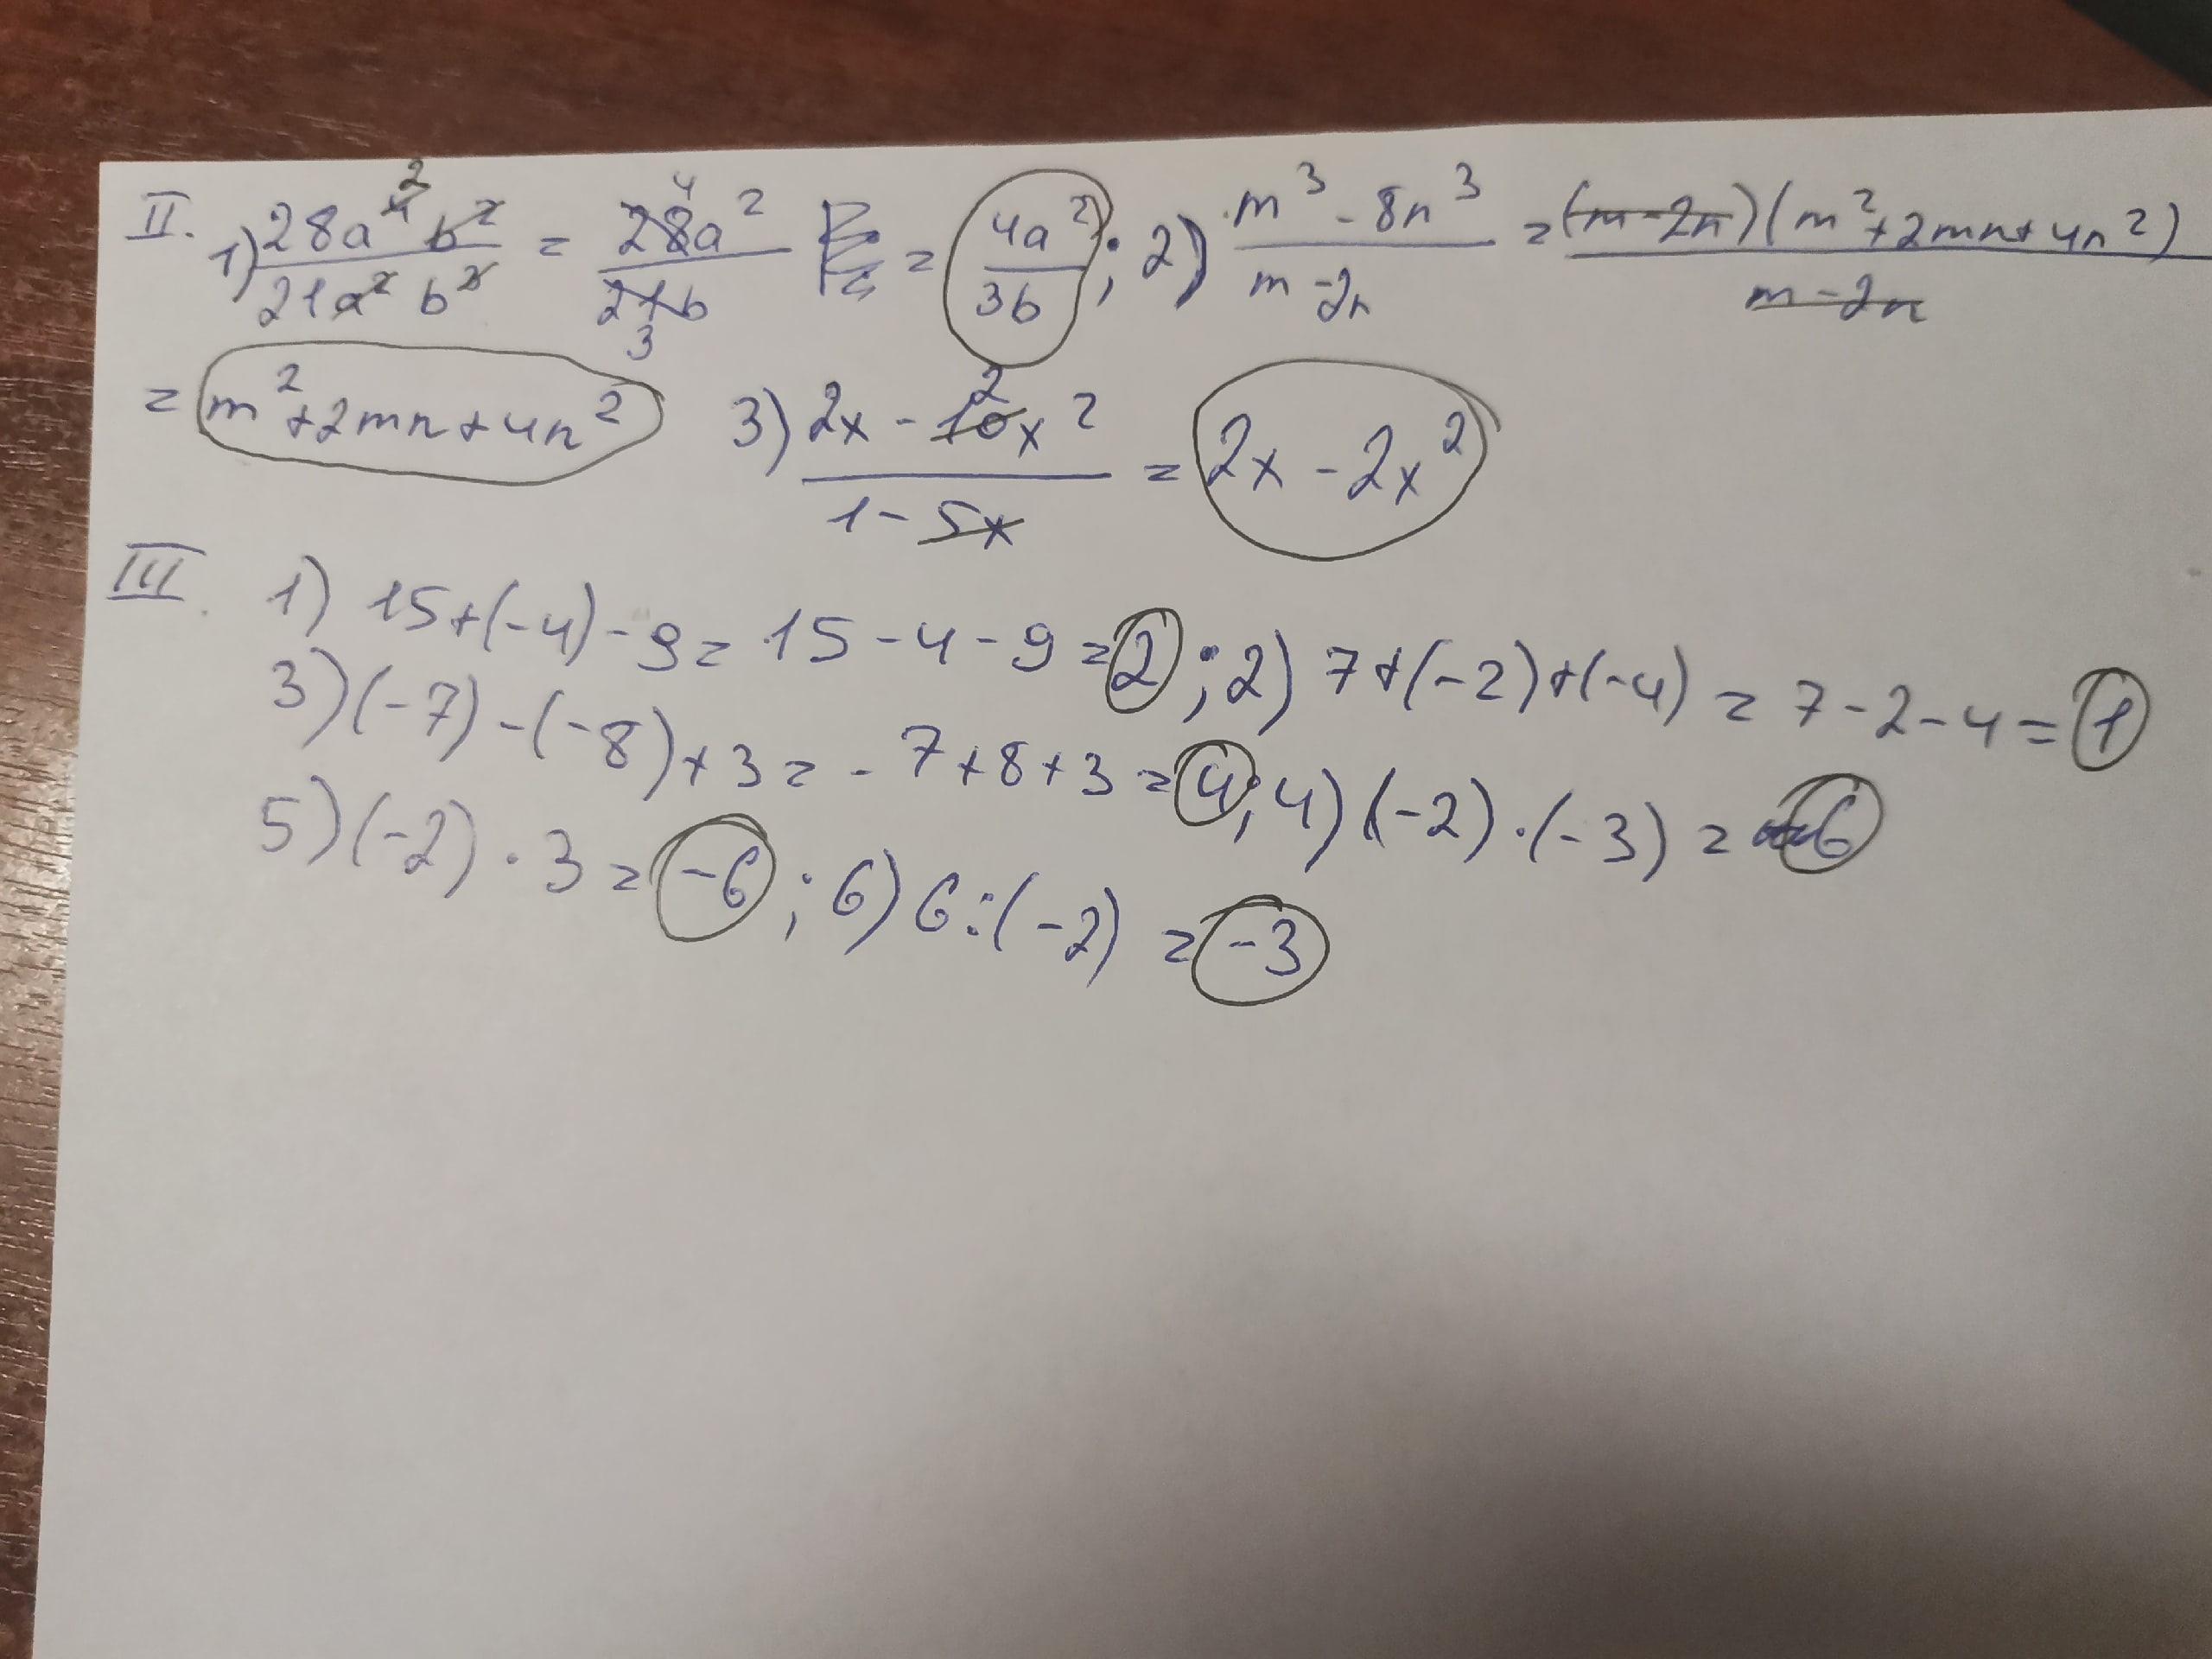 II. 1) 28a⁴b²/21a²b³ = 28a²/21b = 4a²/3b ; 2) m³ - 8n³/m - 2n = (m - 2n)(m² + 2mn + 4n²)/m - 2n
= m² + 2mn + 4n² 3) 2x - 10x²/1 - 5x = 2x - 2x²
III. 1) 15 + (-4) - 9 = 15 - 4 - 9 = 2 ; 2) 7 + (-2) + (-4) = 7 - 2 - 4 = 1
3) (-7) - (-8) + 3 = - 7 + 8 + 3 = 4 ; 4) (-2) · (-3) = 6
5) (-2) · 3 = -6 ; 6) 6 : (-2) = -3